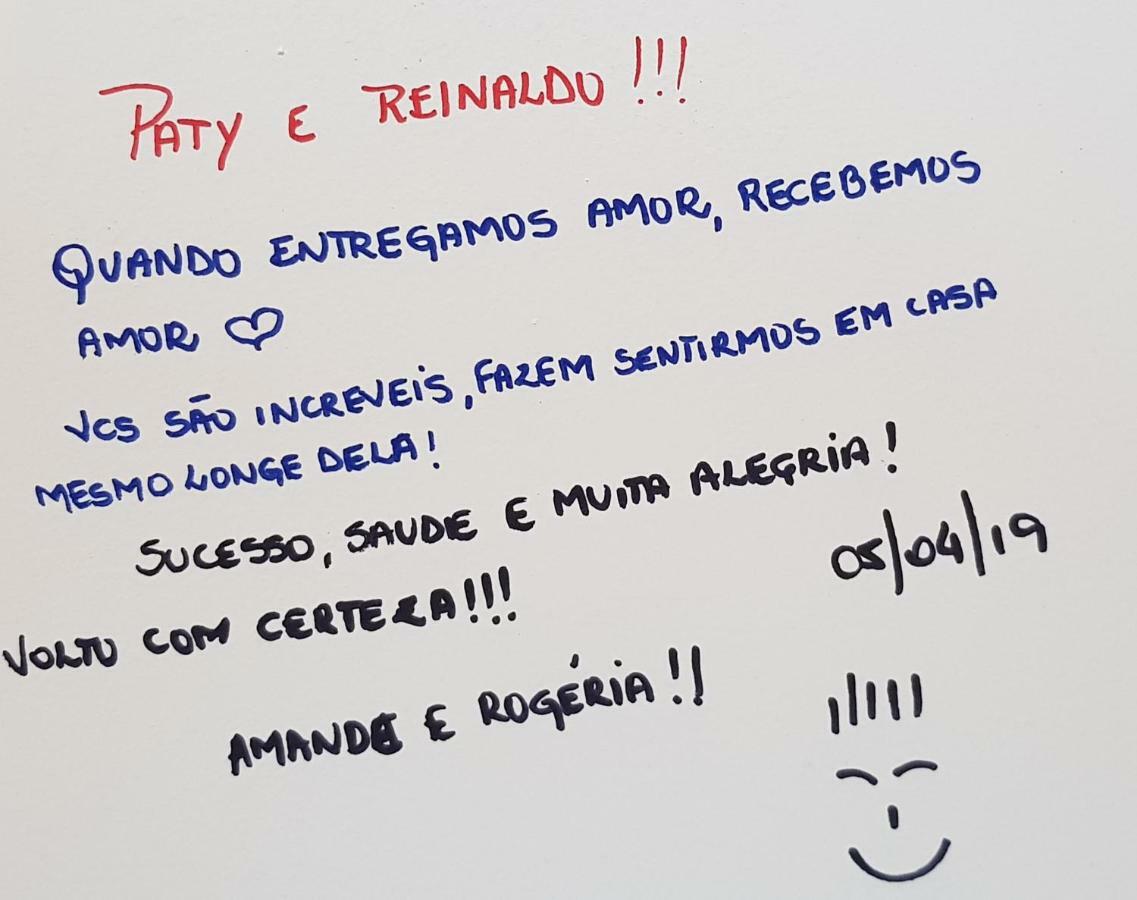 PATY E REINALDO!!!
QUANDO ENTREGAMOS AMOR, RECEBEMOS
AMOR ♡
VCS SÃO INCREVEIS, FAZEM SENTIRMOS EM CASA
MESMO LONGE DELA!
SUCESSO, SAUDE E MUITA ALEGRIA!
05/04/19
VOLTO COM CERTEZA!!!
AMANDA E ROGÉRIA!!